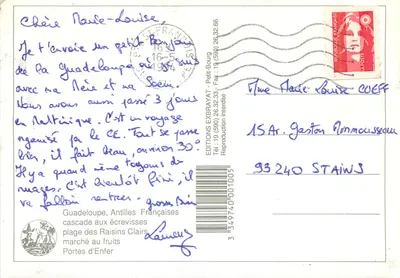 Chère Marie-Louise,
Je t'envoie un petit bonjour
de la Guadeloupe où je suis
avec ma Mère et ma Soeur.
Nous avons aussi passé 3 jours
en Martinique. C'est un voyage
organisé par le CE. Tout se passe
bien, il fait beau, environ 30°.
Il y a quand même toujours des
nuages. C'est bientôt fini, il va
falloir rentrer. Gros Bisous
Guadeloupe, Antilles Françaises
cascade aux écrevisses
plage des Raisins Clairs
marché au fruits
Portes d'Enfer
EDITIONS EXBRAYAT - Petit-Bourg
Tél : 19 (590) 26.32.33 - 19 (590) 26.32.66
Reproduction interdite
3 349740 001005
16-5
Mme Marie-Louise COEFF
15 Ar. Gaston Monmousseau
93240 STAINS